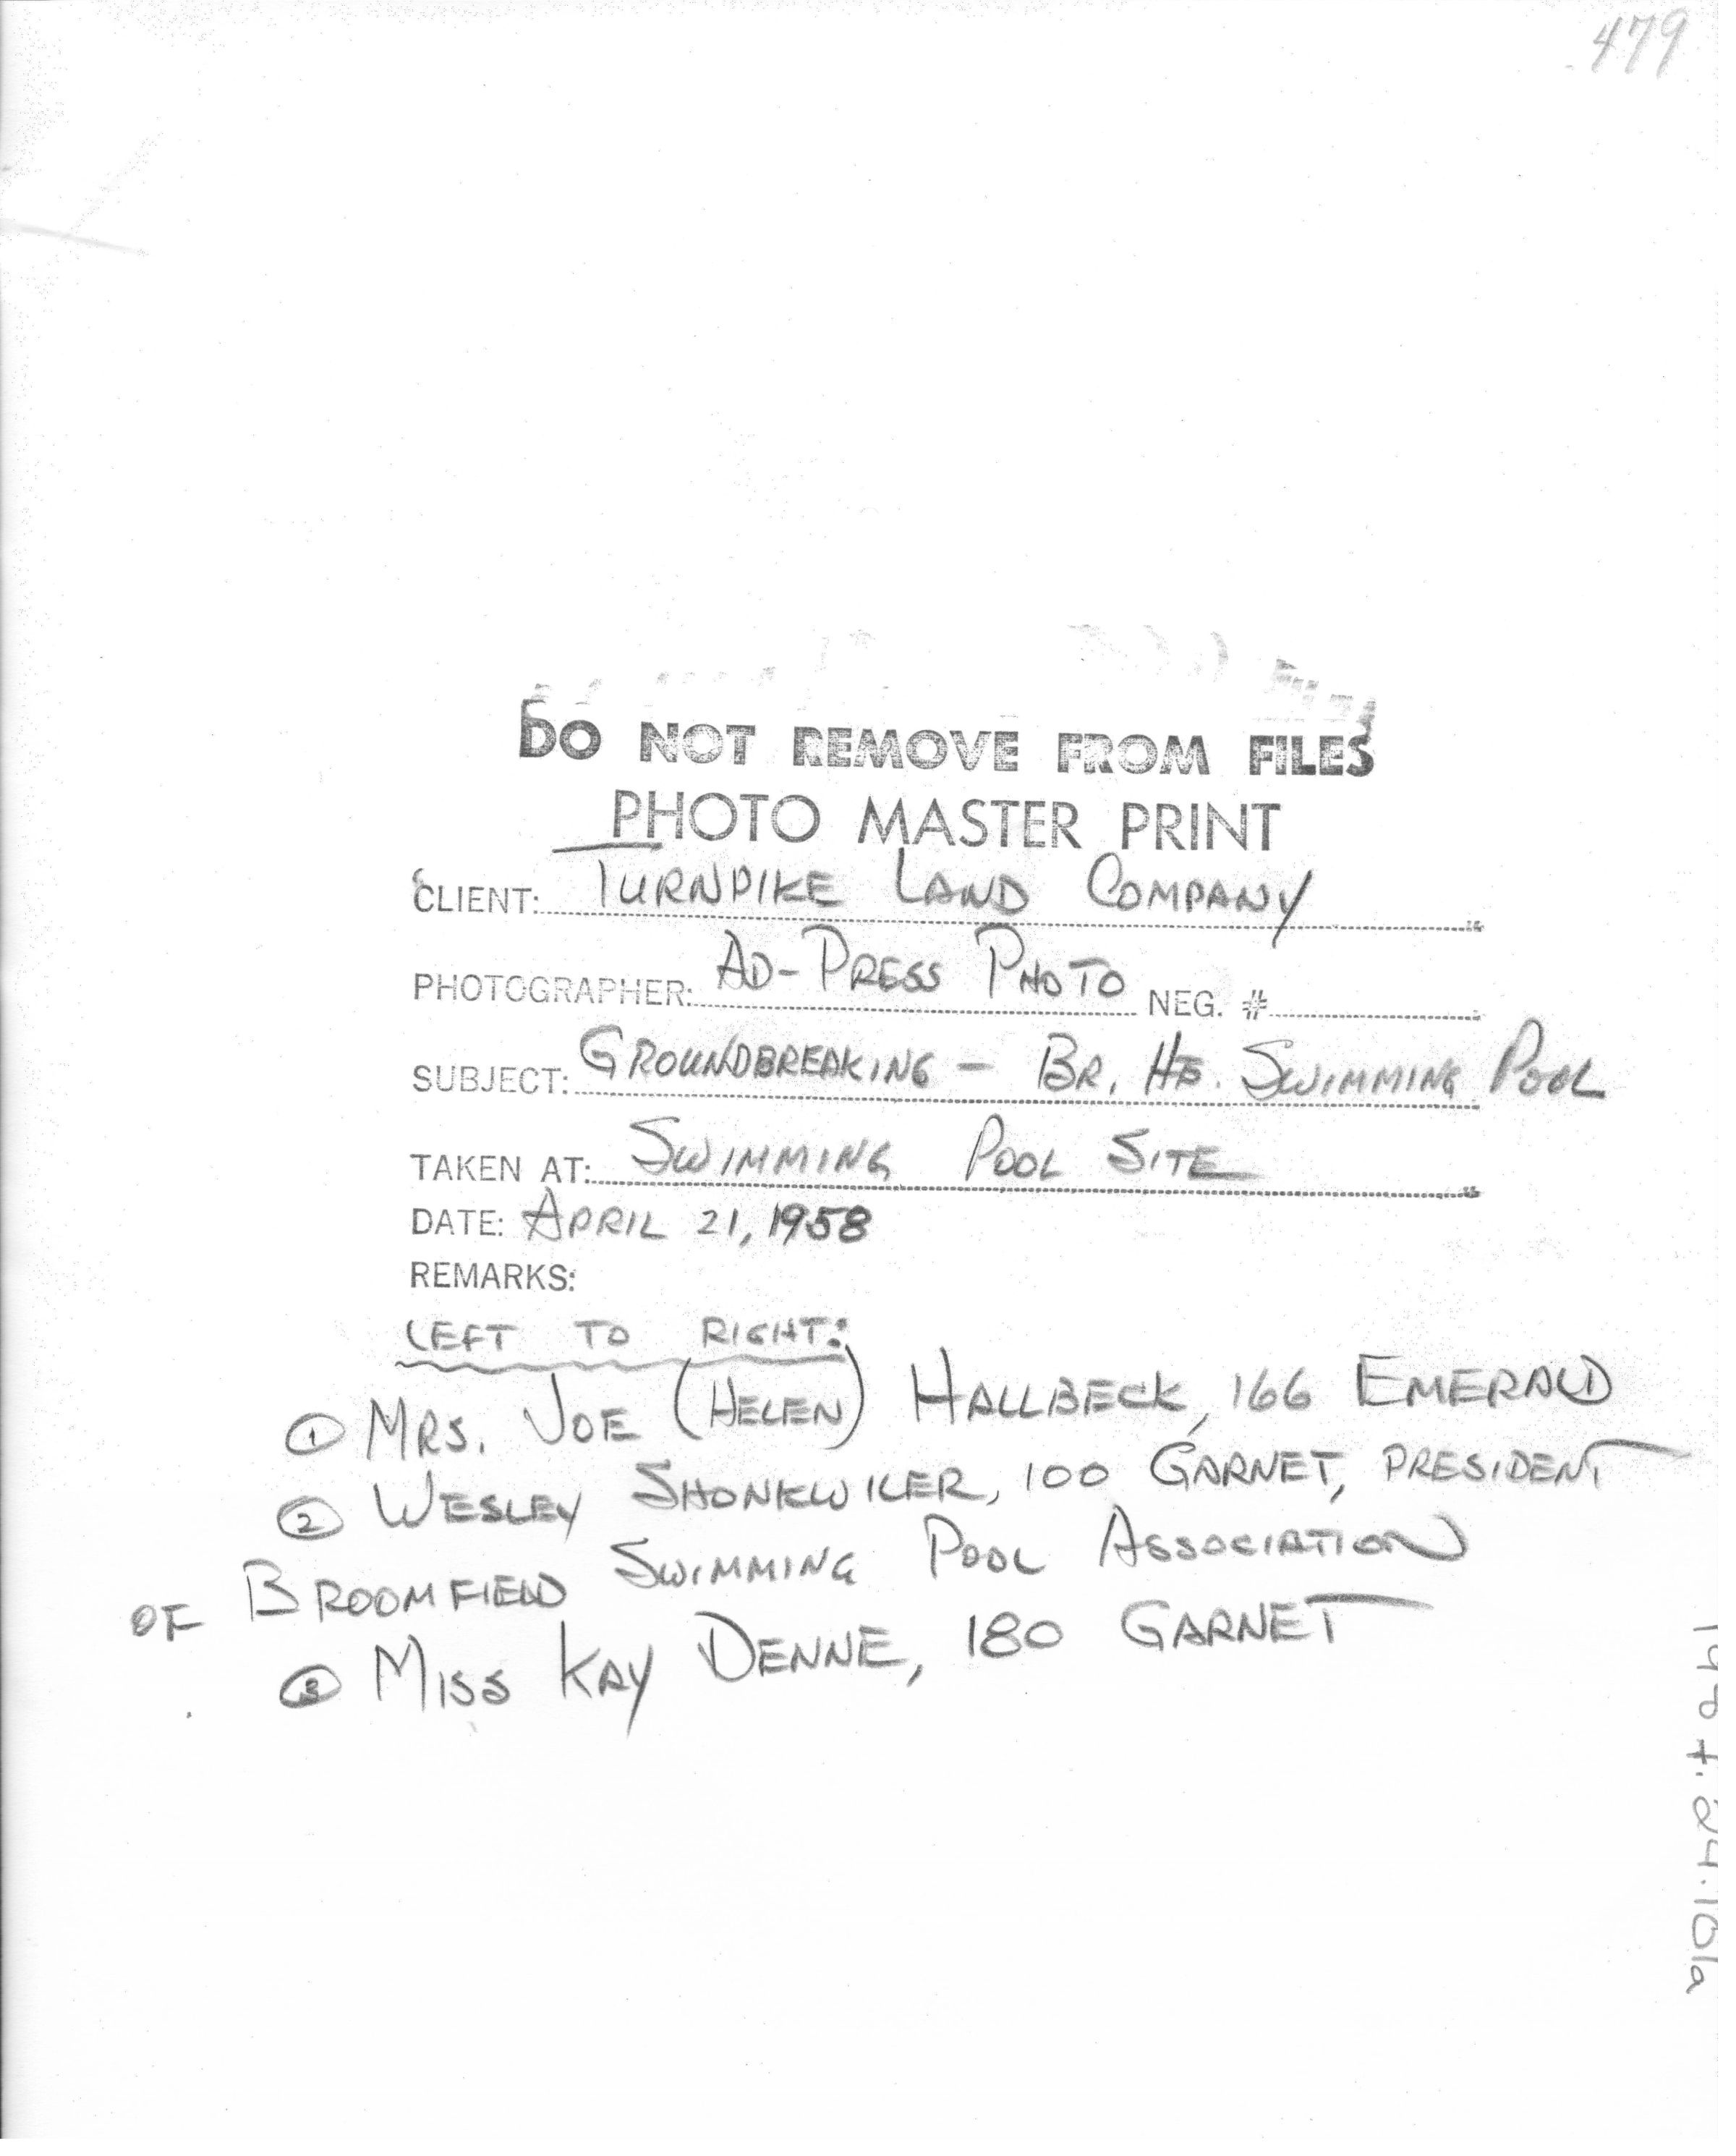 479
DO NOT REMOVE FROM FILES
PHOTO MASTER PRINT
CLIENT: TURNPIKE LAND COMPANY
PHOTOGRAPHER: AD-PRESS PHOTO NEG. #
SUBJECT: GROUNDBREAKING - BR. HTS. SWIMMING POOL
TAKEN AT: SWIMMING POOL SITE
DATE: APRIL 21, 1958
REMARKS:
LEFT TO RIGHT:
① MRS. JOE (HELEN) HALLBECK, 166 EMERALD
② WESLEY SHONKWILER, 100 GARNET, PRESIDENT
OF BROOMFIELD SWIMMING POOL ASSOCIATION
③ MISS KAY DENNE, 180 GARNET